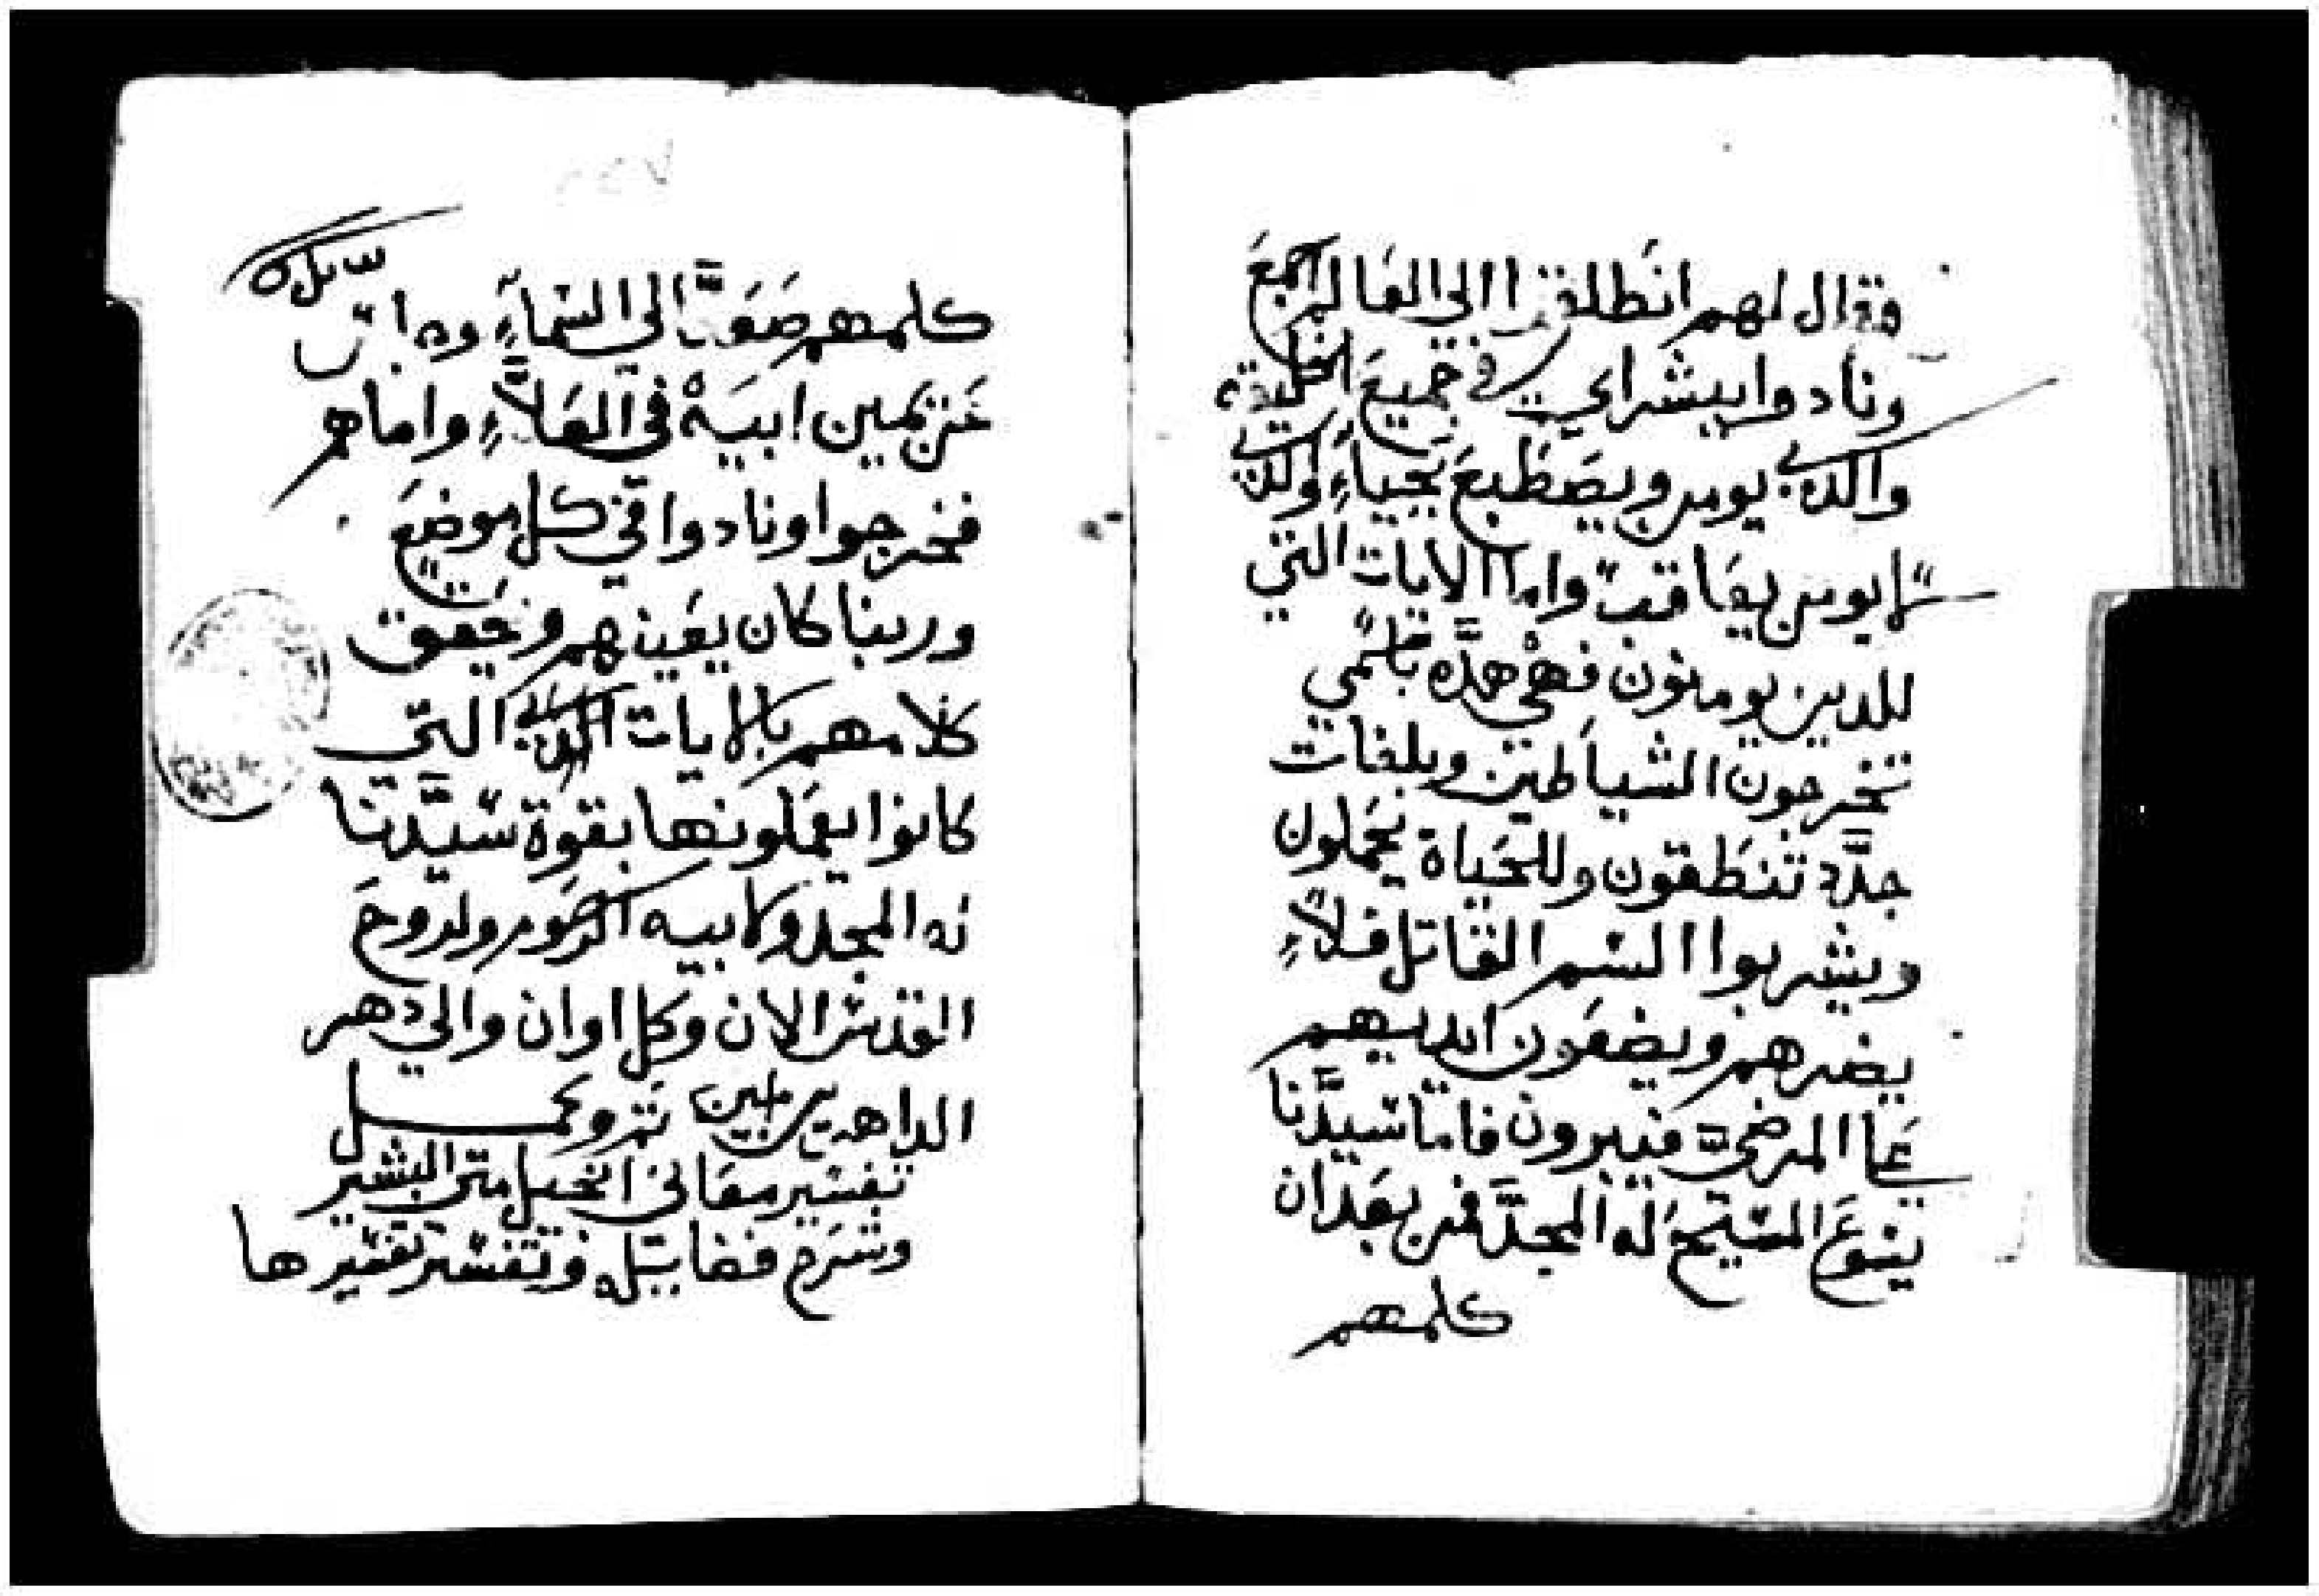 فقال لهم انطلقوا الي العالم اجمع
ونادوا ببشراي في جميع الخليقة
والدي يومن ويصطبغ يحياء والدي
لا يومن يعاقب واما الايات التي
للدين يومنون فهي هده باسمي
تخرجون الشياطين وبلغات
جدد تنطقون وللحياة يحملون
ويشربوا السم القاتل فلاء
يضرهم ويضعون ايديهم
علي المرضي فيبرون فاما سيدنا
يسوع المسيح له المجد فمن بعد ان
كلمهم
كلمهم صعد الي السماء وجلس
عن يمين ابيه في العلاء واما هم
فخرجوا ونادوا في كل موضع
وربنا كان يعينهم ويحقق
كلامهم بالايات التي
كانوا يعملونها بقوة سيدنا
له المجد ولابيه ولروح
القدس الان وكل اوان والي دهر
الداهرين امين تم وكمل
تفسير معاني انجيل متي البشير
وشرح فضايله وتفسير تفسيرها